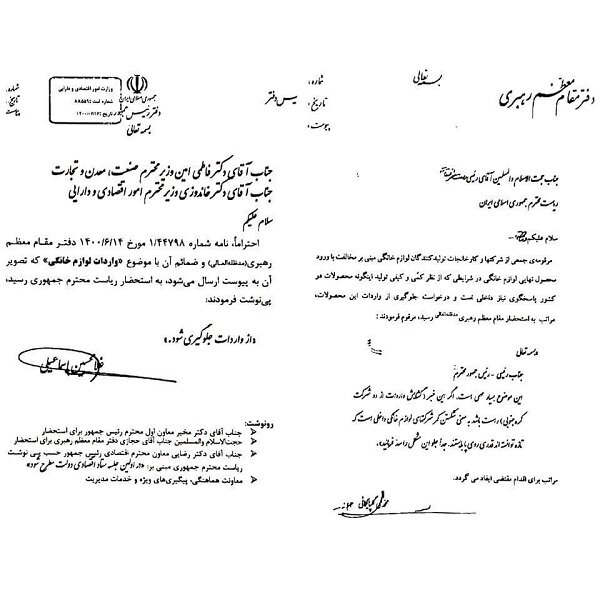 بسمه تعالی
دفتر مقام معظم رهبری
شماره:
تاریخ:
پیوست:
جناب حجت الاسلام والمسلمین آقای رئیسی
ریاست محترم جمهوری اسلامی ایران
سلام علیکم
مرقومه‌ی جمعی از شرکتها و کارخانجات تولیدکنندگان لوازم خانگی مبنی بر مخالفت با ورود
محصول نهایی لوازم خانگی در شرایطی که از نظر کمّی و کیفی تولید اینگونه محصولات در
کشور پاسخگوی نیاز داخلی است و درخواست جلوگیری از واردات این محصولات،
مراتب به استحضار مقام معظم رهبری مدظله‌العالی رسید، مرقوم فرمودند:
بسمه تعالی
جناب رئیسی - رئیس جمهور محترم
این موضوع بسیار مهمی است. اگر این خبر (گشایش واردات از دو شرکت
کره جنوبی) راست باشد به معنی شکستن کمر شرکتهای لوازم خانگی داخلی است که
تازه توانسته‌اند قدری روی پا بایستند. جداً جلو این مشکل را سد فرمائید.
مراتب برای اقدام مقتضی ایفاد می گردد.
محمد گلپایگانی
جمهوری اسلامی ایران
رئیس دفتر
بسمه تعالی
وزارت امور اقتصادی و دارایی
شماره ثبت: ۸۸۵۵۹
تاریخ: ۱۴۰۰/۰۶/۱۶
شماره:
تاریخ:
پیوست:
جناب آقای دکتر فاطمی امین وزیر محترم صنعت، معدن و تجارت
جناب آقای دکتر خاندوزی وزیر محترم امور اقتصادی و دارایی
سلام علیکم
احتراماً، نامه شماره ۱/۴۴۷۹۸ مورخ ۱۴۰۰/۶/۱۴ دفتر مقام معظم
رهبری(مدظله‌العالی) و ضمائم آن با موضوع «واردات لوازم خانگی» که تصویر
آن به پیوست ارسال می‌شود، به استحضار ریاست محترم جمهوری رسید؛
پی‌نوشت فرمودند:
«از واردات جلوگیری شود.»
غلامحسین اسماعیلی
رونوشت:
جناب آقای دکتر مخبر معاون اول محترم رئیس جمهور برای استحضار
حجت‌الاسلام والمسلمین جناب آقای حجازی دفتر مقام معظم رهبری برای استحضار
جناب آقای دکتر رضایی معاون محترم اقتصادی رئیس جمهور حسب پی نوشت
ریاست محترم جمهوری مبنی بر: «در اولین جلسه ستاد اقتصادی دولت مطرح شود»
معاونت هماهنگی، پیگیری‌های ویژه و خدمات مدیریت